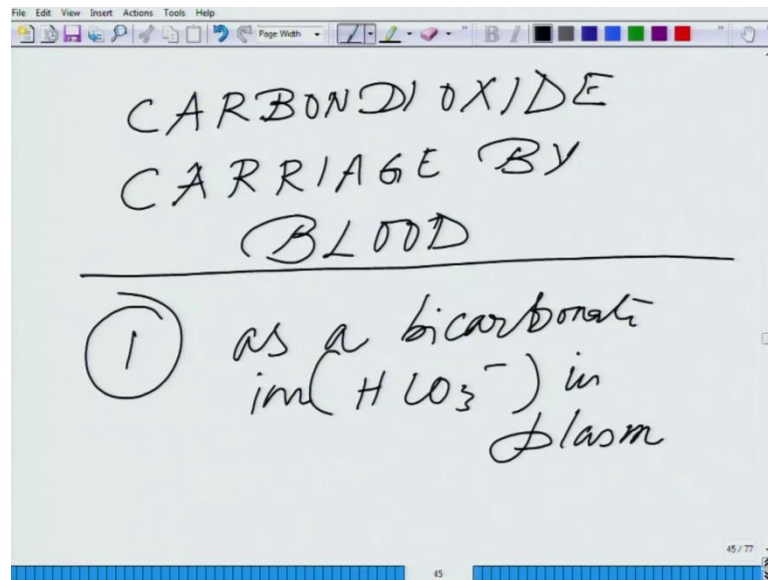 File Edit View Insert Actions Tools Help
Page Width
B I
CARBONDIOXIDE
CARRIAGE BY
BLOOD
1 as a bicarbonate
ion (HCO3⁻) in
plasm
45 / 77
45